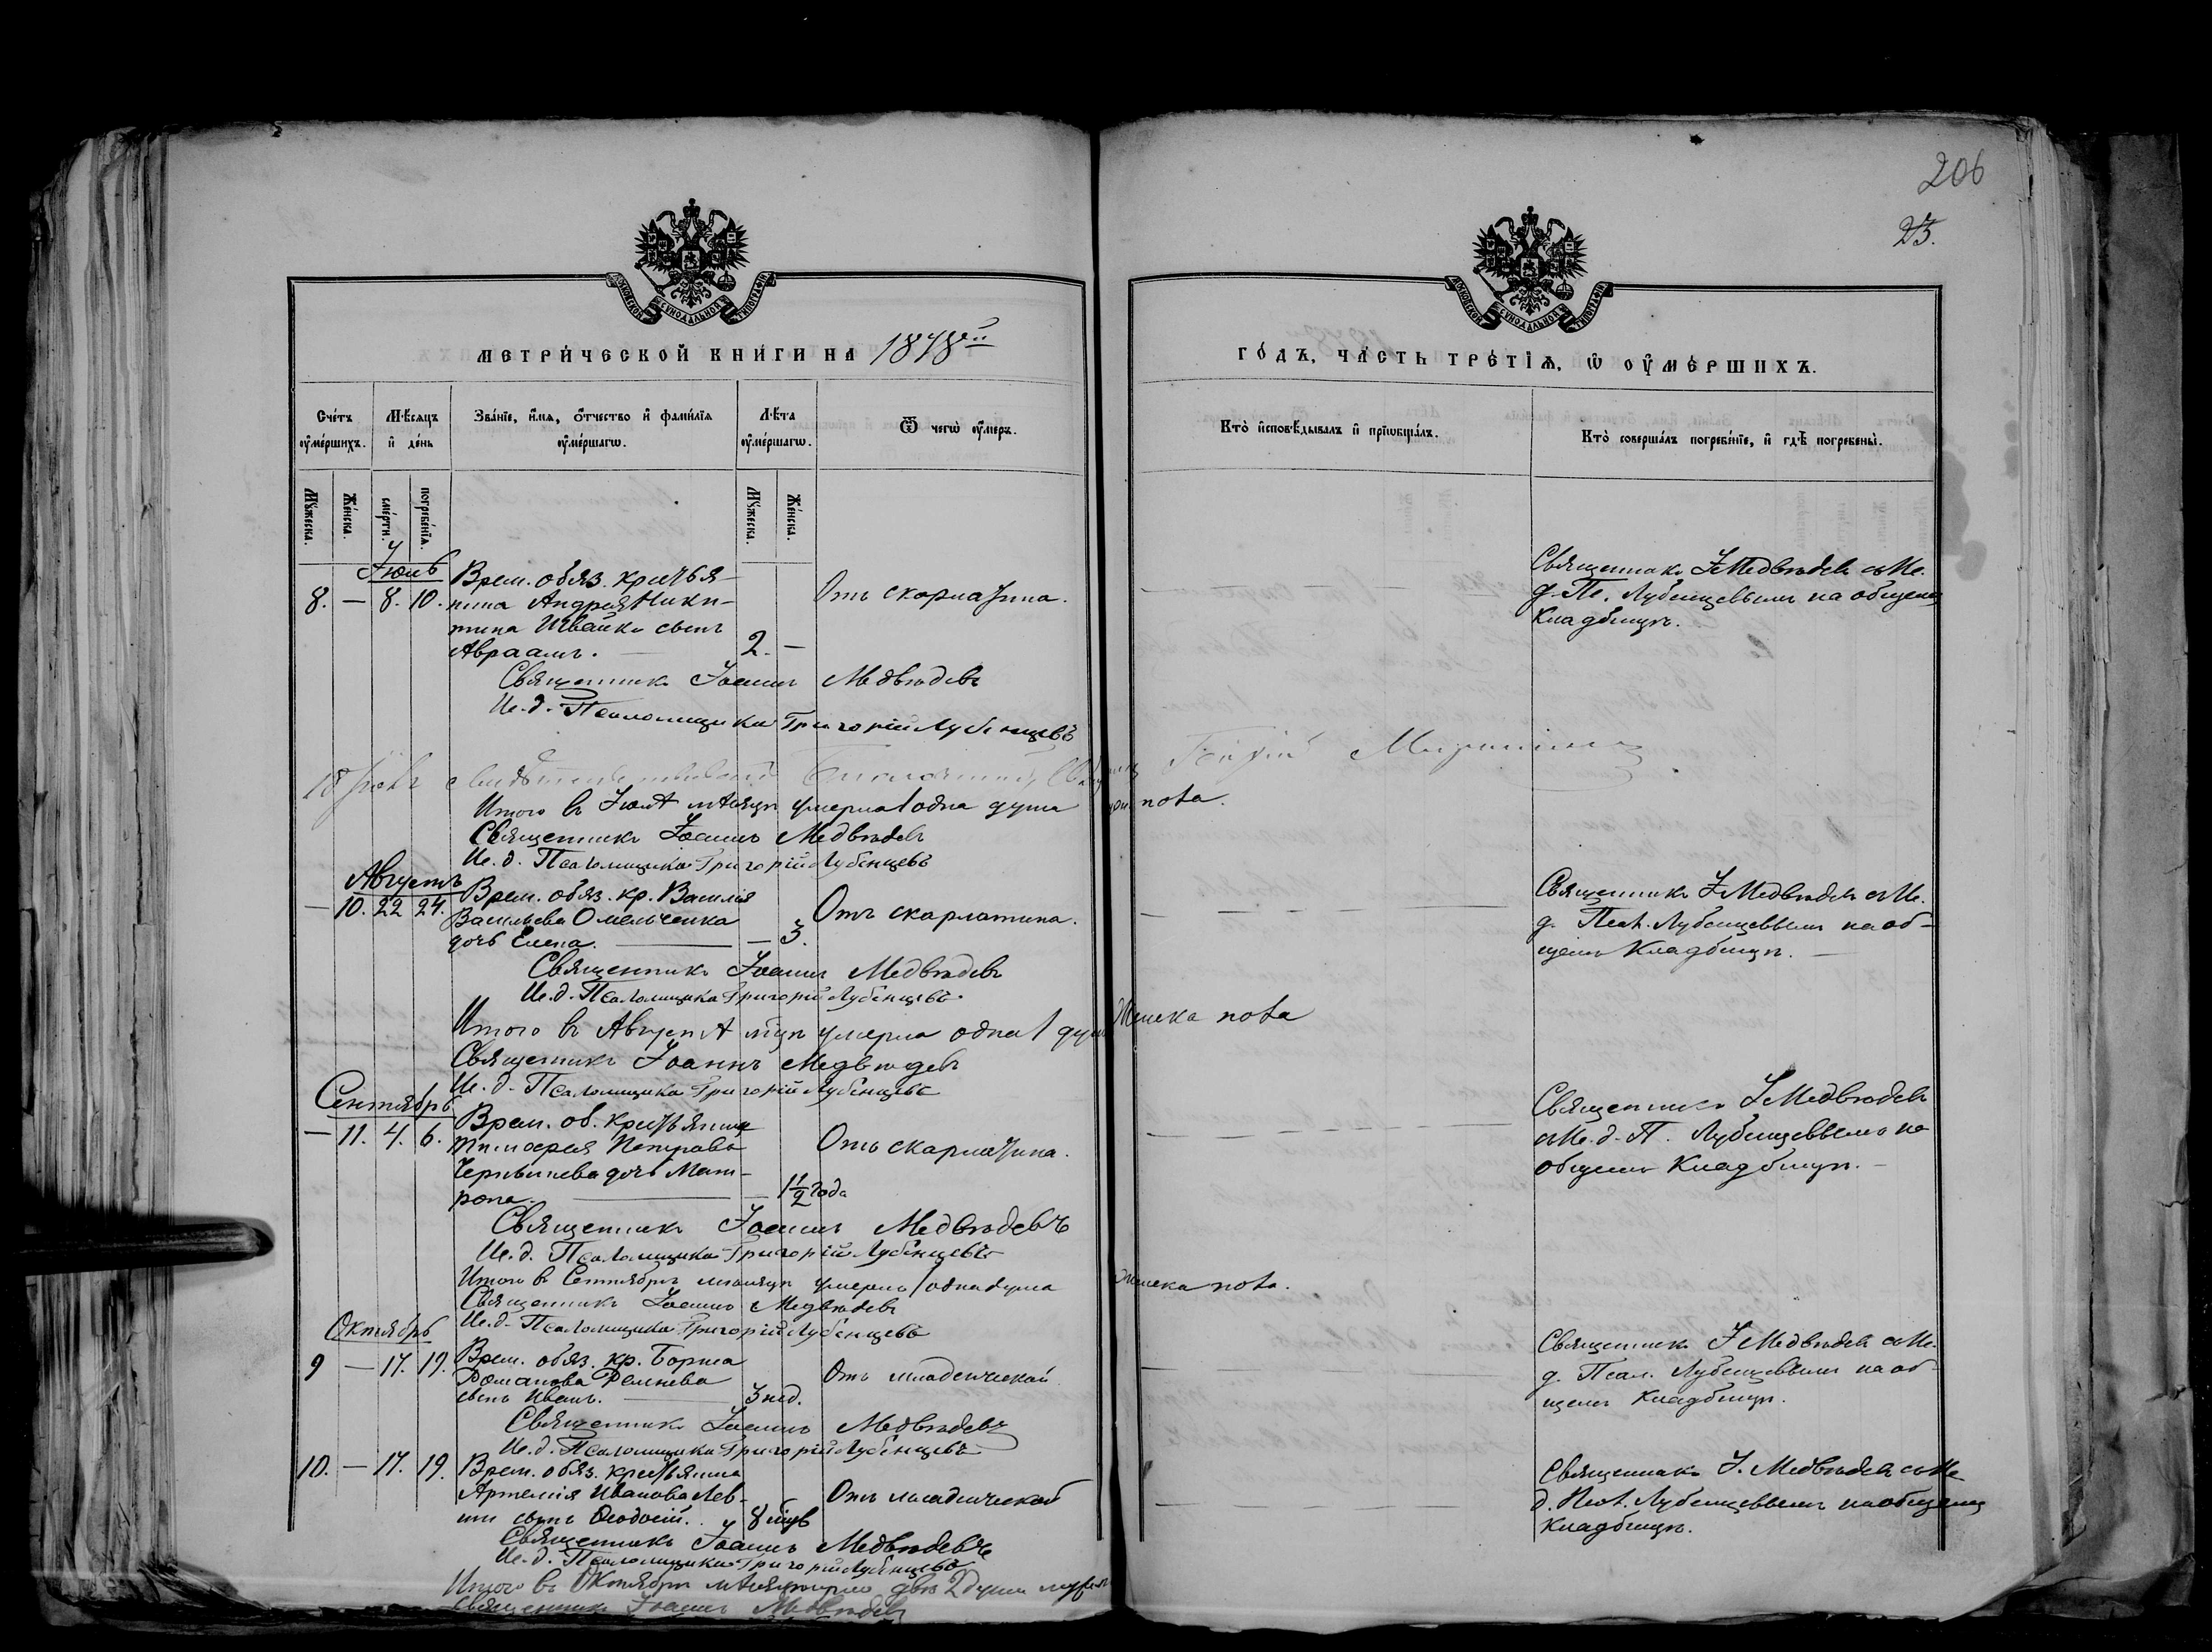 206
23.
МОСКОВСКОЙ СѴНОДАЛЬНОЙ ТИПОГРАФІИ
МОСКОВСКОЙ СѴНОДАЛЬНОЙ ТИПОГРАФІИ
МЕТРИ́ЧЕСКОЙ КНИ́ГИ НА 1878й
ГО́ДЪ, ЧА́СТЬ ТРЕ́ТІѦ, Ѡ ОУ҆МЕ́РШИХЪ.
Сче́тъ оу҆ме́ршихъ.
Мѣ́сяцъ и҆ де́нь
Зва́нїе, и҆́мѧ, ѻ҆́тчество и҆ фами́лїѧ оу҆ме́ршагѡ.
Лѣ́та оу҆ме́ршагѡ.
Ѿ чегѡ̀ оу҆́меръ.
Кто̀ и҆сповѣ́дывалъ и҆ прїѡбща́лъ.
Кто̀ соверша́лъ погребе́нїе, и҆ гдѣ̀ погребены̀.
Мꙋ́жеска.
Же́нска.
сме́рти.
погребе́нїѧ.
Мꙋ́жеска.
Же́нска.
Іюль
8. — 8. 10. Врем. обяз. крестья-
нина Андрея Ники-
тина Швайко сынъ
Авраамъ. — 2. —
Отъ скарлатина.
Священникъ І. Медвѣдевъ съ Ис.
д. Пс. Лубенцевымъ на общемъ
кладбищѣ.
Священникъ Іоаннъ Медвѣдевъ
Ис. д. Псаломщика Григорій Лубенцевъ
Итого въ Іюлѣ мѣсяцѣ умерла 1 одна душа пола.
Священникъ Іоаннъ Медвѣдевъ
Ис. д. Псаломщика Григорій Лубенцевъ
Августъ
— 10. 22 24. Врем. обяз. кр. Василія
Васильева Омельченка
дочь Елена. — — 3.
Отъ скарлатина.
Священникъ І. Медвѣдевъ съ Ис.
д. Псал. Лубенцевымъ на об-
щемъ кладбищѣ. —
Священникъ Іоаннъ Медвѣдевъ
Ис. д. Псаломщика Григорій Лубенцевъ.
Итого въ Августѣ мѣцѣ умерла одна 1 душа женска пола
Священникъ Іоаннъ Медвѣдевъ
Ис. д. Псаломщика Григорій Лубенцевъ
Сентябрь
— 11. 4. 6. Врем. об. крестьянина
Тимофея Петрова
дочь Мат-
рона. — — 1 1/2 года
Отъ скарлатина.
Священникъ І. Медвѣдевъ
съ Ис. д. П. Лубенцевымъ на
общемъ кладбищѣ. —
Священникъ Іоаннъ Медвѣдевъ
Ис. д. Псаломщика Григорій Лубенцевъ
Итого въ Сентябрѣ мѣсяцѣ умерла 1 одна душа женска пола.
Священникъ Іоаннъ Медвѣдевъ
Ис. д. Псаломщика Григорій Лубенцевъ
Октябрь
9 — 17. 19. Врем. обяз. кр. Бориса
Романова
сынъ Иванъ. — 3 нед.
Отъ младенческой
Священникъ І. Медвѣдевъ съ Ис.
д. Псал. Лубенцевымъ на об-
щемъ кладбищѣ.
Священникъ Іоаннъ Медвѣдевъ
Ис. д. Псаломщика Григорій Лубенцевъ
10. — 17. 19. Врем. обяз. крестьянина
Артемія Иванова
сынъ Ѳеодосій. 8 мцѣв
Отъ младенческой
Священникъ І. Медвѣдевъ съ Ис.
д. Псал. Лубенцевымъ на общемъ
кладбищѣ.
Священникъ Іоаннъ Медвѣдевъ
Ис. д. Псаломщика Григорій Лубенцевъ
Итого въ Октябрѣ мѣсяцѣ умерло двѣ 2 души
Священникъ Іоаннъ Медвѣдевъ